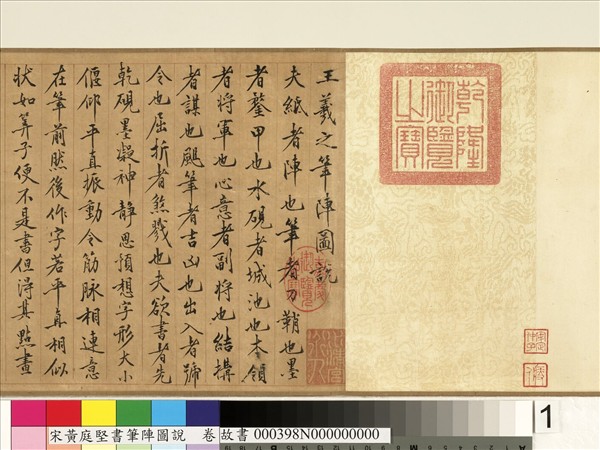 乾隆
御覽
之寶
王羲之筆陣圖說
夫紙者陣也筆者刀鞘也墨
者鍪甲也水硯者城池也本領
者將軍也心意者副將也結搆
者謀也颺筆者吉凶也出入者號
令也屈折者煞戮也夫欲書者先
乾硯墨凝神靜思預想字形大小
偃仰平直振動令筋脉相連意
在筆前然後作字若平直相似
狀如筭子便不是書但得其點畫
宋黃庭堅書筆陣圖說 卷 故書 000398N000000000
1